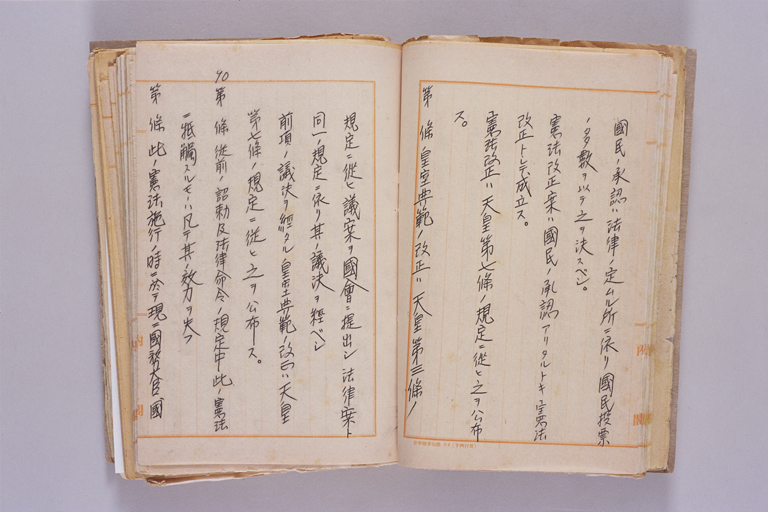 國民ノ承認ハ法律ノ定ムル所ニ依リ國民投票
ノ多數ヲ以テ之ヲ決スベシ。
憲法改正案ハ國民ノ承認アリタルトキ憲法
改正トシテ成立ス。
憲法改正ハ天皇第七條ノ規定ニ從ヒ之ヲ公布
ス。
第 條 皇室典範ノ改正ハ天皇第三條ノ
規定ニ從ヒ議案ヲ國會ニ提出シ法律案ト
同一ノ規定ニ依リ其ノ議決ヲ經ベシ
前項ノ議決ヲ經タル皇室典範ノ改正ハ天皇
第七條ノ規定ニ從ヒ之ヲ公布ス。
90
第 條 從前ノ詔勅及法律命令ノ規定中此ノ憲法
ニ牴觸スルモノハ凡テ其ノ效力ヲ失フ
第 條 此ノ憲法施行ノ時ニ於テ現ニ國務大臣國
内閣